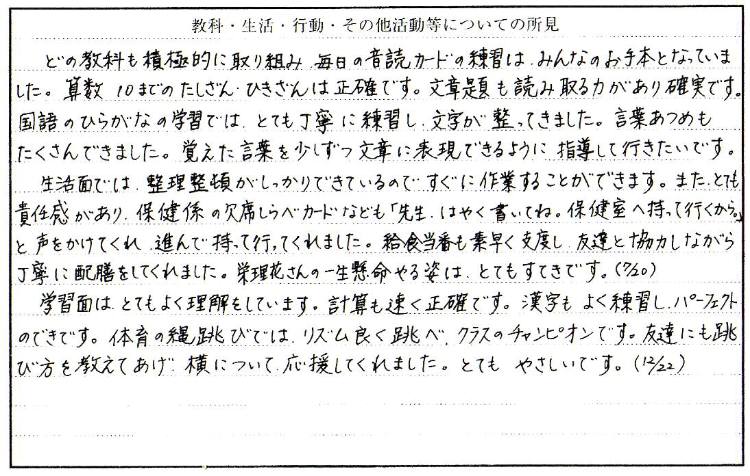 教科・生活・行動・その他活動等についての所見
どの教科も積極的に取り組み、毎日の音読カードの練習は、みんなのお手本となっていま
した。算数 10までのたしざん・ひきざんは正確です。文章題も読み取る力があり確実です。
国語のひらがなの学習では、とても丁寧に練習し、文字が整ってきました。言葉あつめも
たくさんできました。覚えた言葉を少しずつ文章に表現できるように指導して行きたいです。
生活面では、整理整頓がしっかりできているので、すぐに作業することができます。また、とても
責任感があり、保健係の欠席しらべカードなども「先生、はやく書いてね。保健室へ持って行くから。」
と声をかけてくれ、進んで持って行ってくれました。給食当番も素早く支度し、友達と協力しながら
丁寧に配膳をしてくれました。栄理花さんの一生懸命やる姿は、とてもすてきです。(7/20)
学習面は、とてもよく理解をしています。計算も速く正確です。漢字もよく練習し、パーフェクト
のできです。体育の縄跳びでは、リズム良く跳べ、クラスのチャンピオンです。友達にも跳
び方を教えてあげ、横について、応援してくれました。とても やさしいです。(12/22)